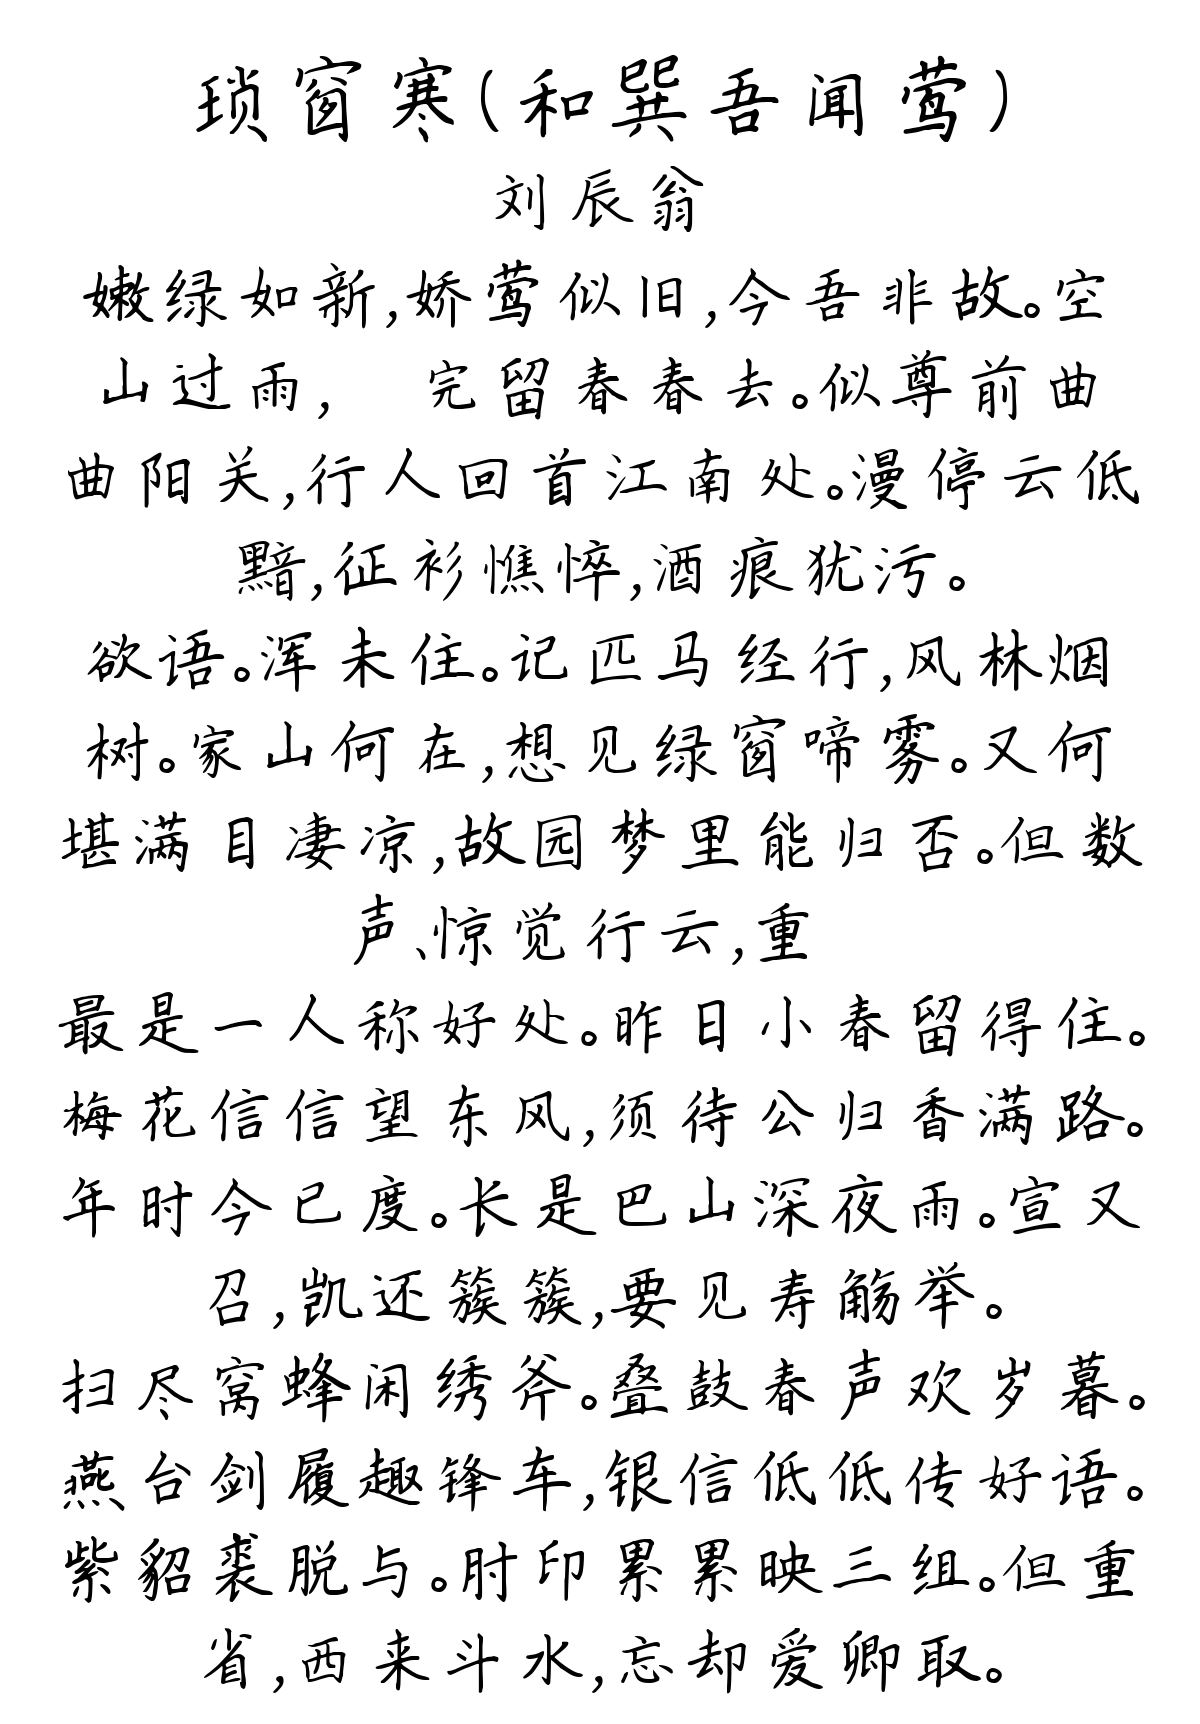 琐窗寒(和巽吾闻莺)
刘辰翁
嫩绿如新,娇莺似旧,今吾非故。空
山过雨, 完留春春去。似尊前曲
曲阳关,行人回首江南处。漫停云低
黯,征衫憔悴,酒痕犹污。
欲语。浑未住。记匹马经行,风林烟
树。家山何在,想见绿窗啼雾。又何
堪满目凄凉,故园梦里能归否。但数
声、惊觉行云,重
最是一人称好处。昨日小春留得住。
梅花信信望东风,须待公归香满路。
年时今已度。长是巴山深夜雨。宣又
召,凯还簇簇,要见寿觞举。
扫尽窝蜂闲绣斧。叠鼓春声欢岁暮。
燕台剑履趣锋车,银信低低传好语。
紫貂裘脱与。肘印累累映三组。但重
省,西来斗水,忘却爱卿取。